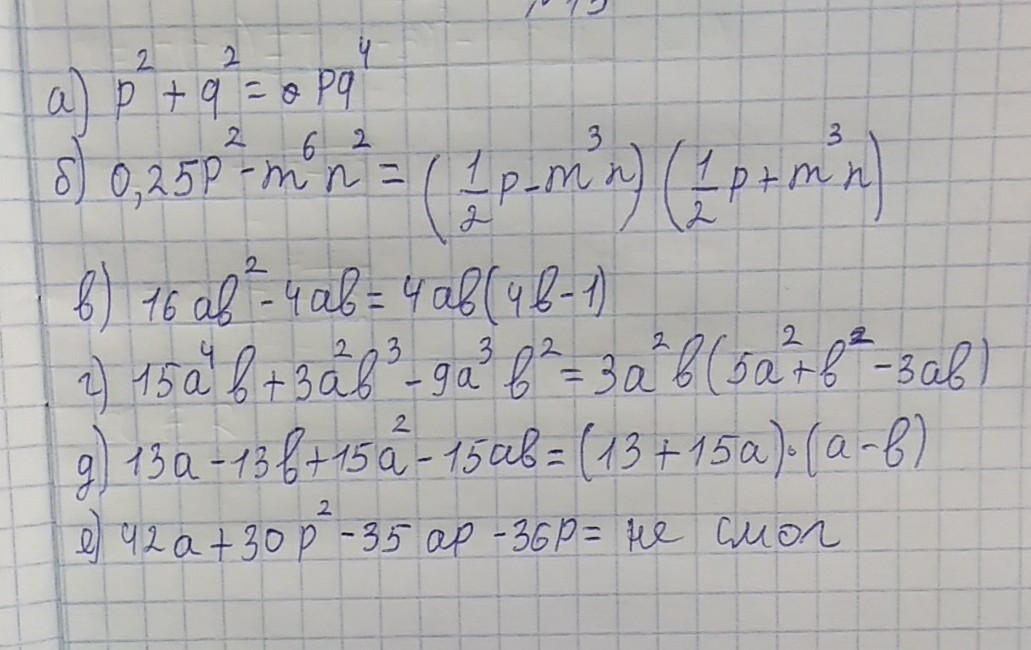 а) p² + q² = pq⁴
б) 0,25p² - m⁶n² = (1/2 p - m³n) (1/2 p + m³n)
в) 16ab² - 4ab = 4ab(4b - 1)
г) 15a⁴b + 3a²b³ - 9a³b² = 3a²b(5a² + b² - 3ab)
д) 13a - 13b + 15a² - 15ab = (13 + 15a)·(a - b)
е) 42a + 30p² - 35ap - 36p = не смог